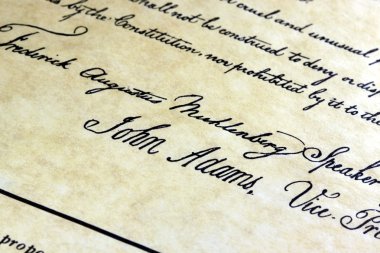 cruel and unusual p
shall not be construed to deny or disp
by the Constitution, nor prohibited by it to the
Frederick Augustus Muhlenberg Speaker
John Adams, Vice Pre
propo